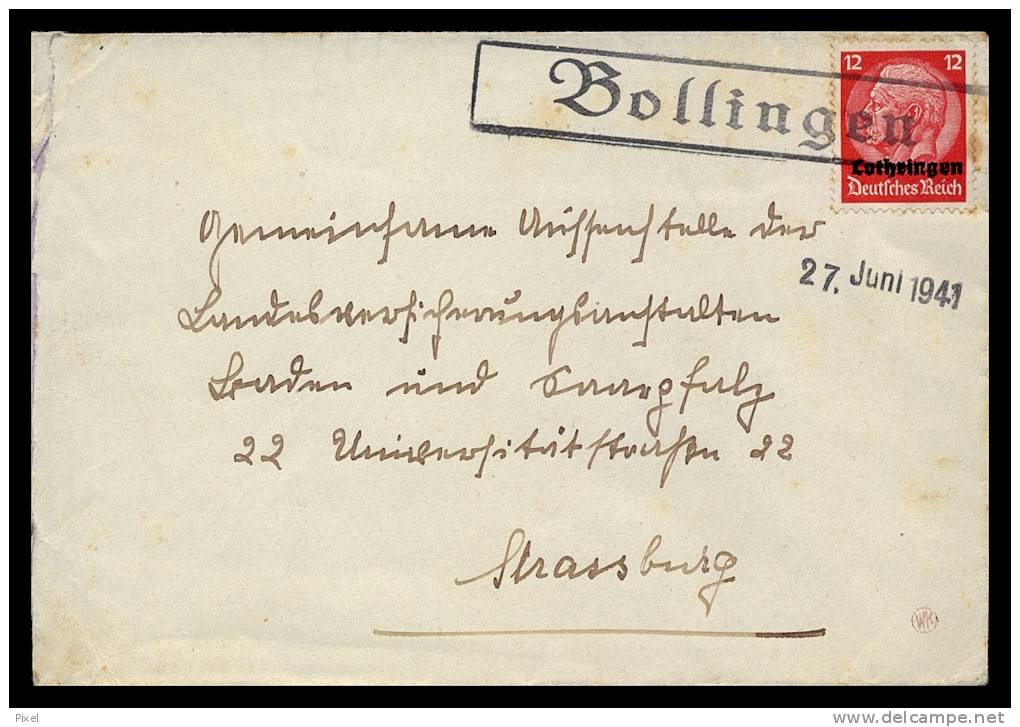 Bollingen
12 12
Lothringen
Deutsches Reich
27. Juni 1941
Gemeinsame Aussenstelle der
Landesversicherungsanstalten
Baden und Saarpfalz
22 Universitätstraße 22
Strassburg
WK
Pixel
www.delcampe.net